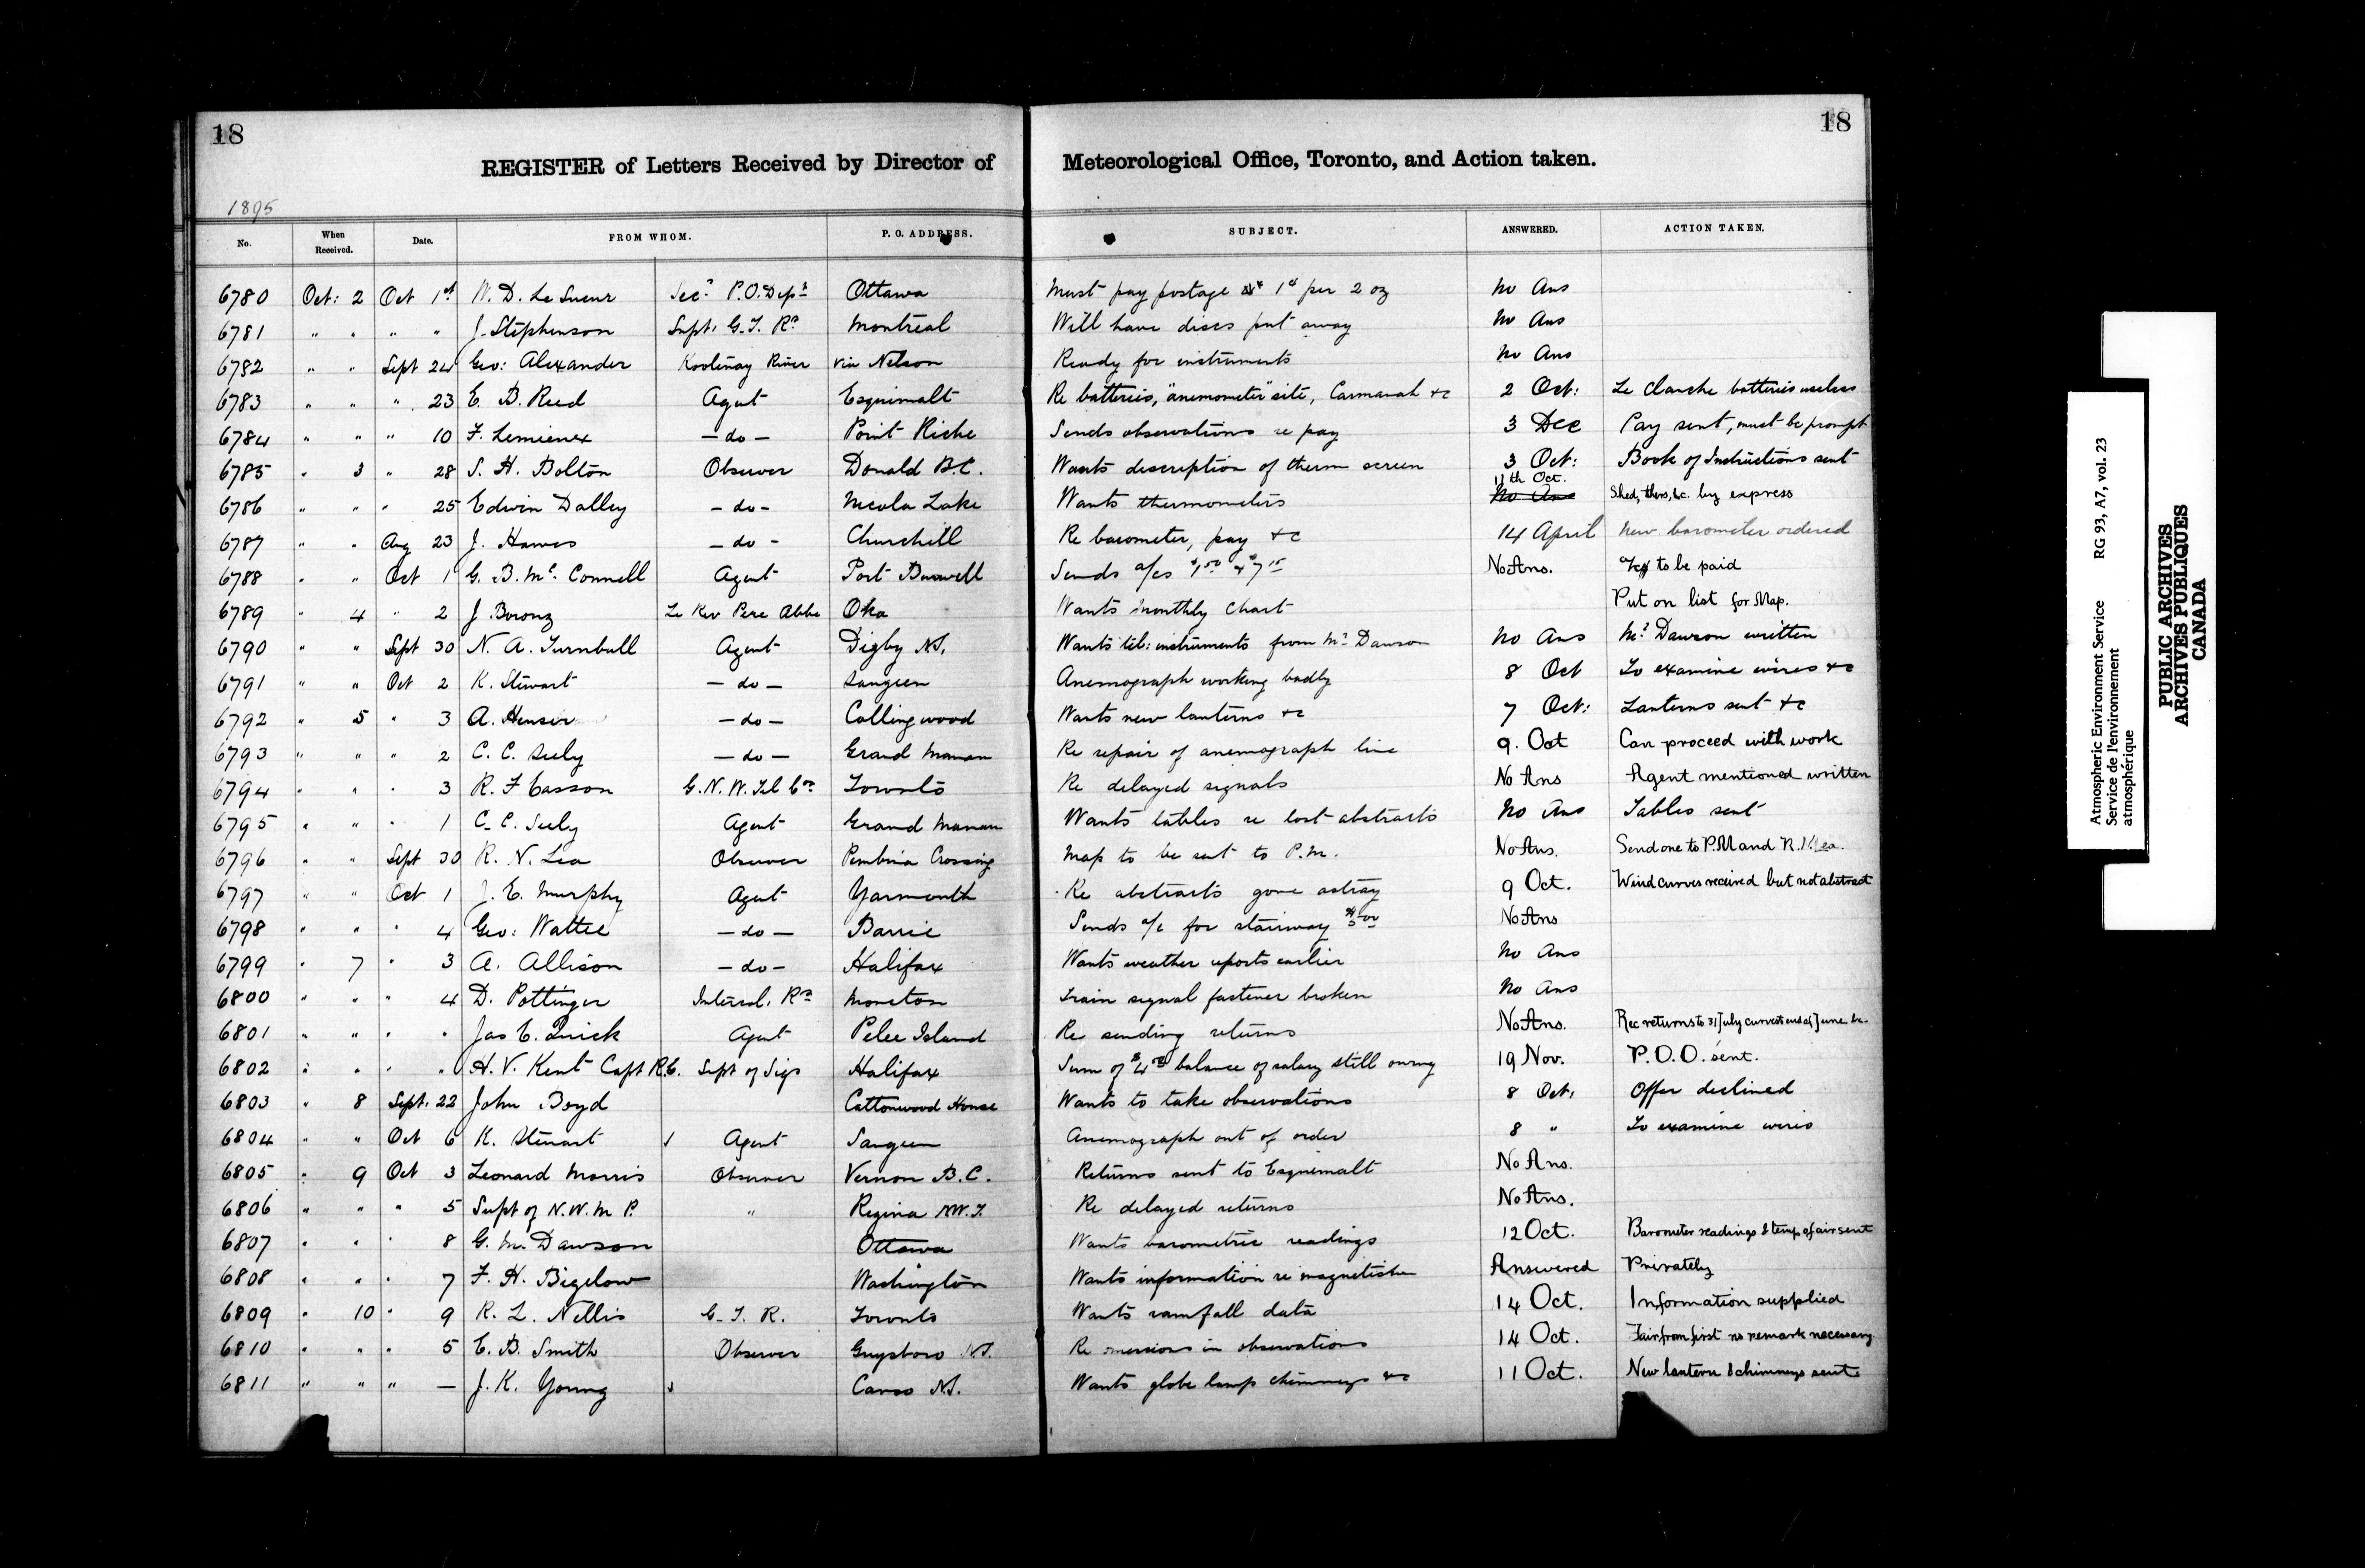 18
18
REGISTER of Letters Received by Director of Meteorological Office, Toronto, and Action taken.
1895
No. When Received. Date. FROM WHOM. P. O. ADDRESS. SUBJECT. ANSWERED. ACTION TAKEN.
6780 Oct: 2 Oct 1st W. D. Le Sueur Secy P.O. Dept Ottawa Must pay postage 1c per 2 oz No Ans
6781 " " " " J. Stephenson Supt. G. T. Ry Montreal Will have discs put away No Ans
6782 " " Sept 24 Geo: Alexander Kootenay River via Nelson Ready for instruments No Ans
6783 " " " 23 E. B. Reed Agent Esquimalt Re batteries, "anemometer" site, Carmanah &c 2 Oct: Le Clanche batteries useless
6784 " " " 10 F. Lemieux — do — Point Riche Sends observations re pay 3 Dec Pay sent, must be prompt
6785 " 3 " 28 S. H. Bolton Observer Donald B.C. Wants description of therm screen 3 Oct: Book of Instructions sent
6786 " " " 25 Edwin Dalley - do - Nicola Lake Wants thermometers 11th Oct. No Ans Shed, thers, &c. by express
6787 " " Aug 23 J. Hawes — do - Churchill Re barometer, pay &c 14 April New barometer ordered
6788 " " Oct 1 G. B. McConnell Agent Port Burwell Sends a/cs No Ans. to be paid
6789 " 4 " 2 J. Le Rev Pere Abbe Oka Wants monthly chart Put on list for Map.
6790 " " Sept 30 N. A. Turnbull Agent Digby N.S. Wants tel: instruments from Mr Dawson No Ans Mr Dawson written
6791 " " Oct 2 K. Stewart — do — Saugeen Anemograph working badly 8 Oct To examine wires &c
6792 " 5 " 3 A. — do — Collingwood Wants new lanterns &c 7 Oct: Lanterns sent &c
6793 " " " 2 C. C. Seely — do — Grand Manan Re repair of anemograph line 9. Oct Can proceed with work
6794 " " " 3 R. F Easson G. N. W. Tel Co Toronto Re delayed signals No Ans Agent mentioned written
6795 " " " 1 C. C. Seely Agent Grand Manan Wants tables re lost abstracts No Ans Tables sent
6796 " " Sept 30 R. N. Lea Observer Pembina Crossing Map to be sent to P.M. No Ans. Send one to P.M and R. N Lea.
6797 " " Oct 1 J. E. Murphy Agent Yarmouth Re abstracts gone astray 9 Oct. Wind curves received but not abstract
6798 " " " 4 Geo: Wattie — do — Barrie Sends a/c for stairway $5.00 No Ans
6799 " 7 " 3 A. Allison — do — Halifax Wants weather reports earlier No Ans
6800 " " " 4 D. Pottinger Intercol. Ry Moncton Train signal fastener broken No Ans
6801 " " " " Jas E. Quick Agent Pelee Island Re sending returns No Ans. Rec returns to 31 July curves to end of June &c.
6802 " " " " H. V. Kent Capt R.E. Supt of Sigs Halifax Sum of $4.00 balance of salary still owing 19 Nov. P.O.O. sent.
6803 " 8 Sept. 22 John Boyd Cottonwood House Wants to take observations 8 Oct, Offer declined
6804 " " Oct 6 K. Stewart Agent Saugeen Anemograph out of order 8 " To examine wires
6805 " 9 Oct 3 Leonard Morris Observer Vernon B.C. Returns sent to Esquimalt No Ans.
6806 " " " 5 Supt of N. W. M P. " Regina NW.T. Re delayed returns No Ans.
6807 " " " 8 G. M. Dawson Ottawa Wants barometric readings 12 Oct. Barometer readings & temp of air sent
6808 " " " 7 F. H. Bigelow Washington Wants information re magnetism Answered Privately
6809 " 10 " 9 R. L. Nellis G. T. R. Toronto Wants rainfall data 14 Oct. Information supplied
6810 " " " 5 E. B. Smith Observer Guysboro N.S. Re omissions in observations 14 Oct. Fair from first no remark necessary.
6811 " " " — J. K. Young Canso N.S. Wants globe lamp chimneys &c 11 Oct. New lantern & chimneys sent
Atmospheric Environment Service RG 93, A7, vol. 23
Service de l'environnement
atmosphérique
PUBLIC ARCHIVES
ARCHIVES PUBLIQUES
CANADA